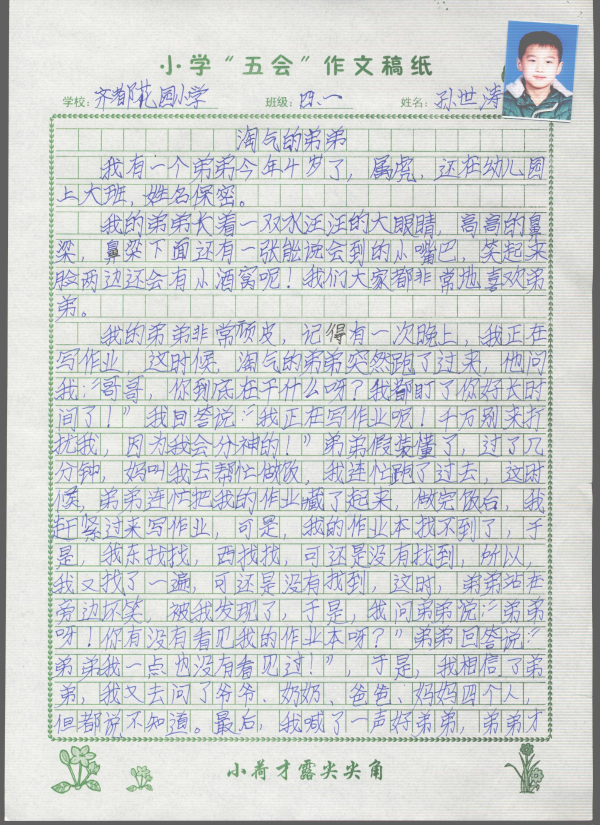 小学“五会”作文稿纸
学校：齐都花园小学 班级：四.一 姓名：孙世涛
淘气的弟弟
我有一个弟弟今年4岁了，属虎，还在幼儿园
上大班，姓名保密。
我的弟弟长着一双水汪汪的大眼睛，高高的鼻
梁，鼻梁下面还有一张能说会到的小嘴巴，笑起来
脸两边还会有小酒窝呢！我们大家都非常地喜欢弟
弟。
我的弟弟非常顽皮，记得有一次晚上，我正在
写作业，这时候，淘气的弟弟突然跑了过来，他问
我：“哥哥，你到底在干什么呀？我都盯了你好长时
间了！”我回答说：“我正在写作业呢！千万别来打
扰我，因为我会分神的！”弟弟假装懂了，过了几
分钟，妈叫我去帮忙做饭，我连忙跑了过去，这时
候，弟弟连忙把我的作业藏了起来，做完饭后，我
赶紧过来写作业，可是，我的作业本找不到了，于
是，我东找找，西找找，可还是没有找到，所以，
我又找了一遍，可还是没有找到，这时，弟弟站在
旁边坏笑，被我发现了，于是，我问弟弟说：“弟弟
呀！你有没有看见我的作业本呀？”弟弟回答说：“
弟弟我一点也没有看见过！”，于是，我相信了弟
弟，我又去问了爷爷、奶奶、爸爸、妈妈四个人，
但都说不知道。最后，我喊了一声好弟弟，弟弟才
小荷才露尖尖角